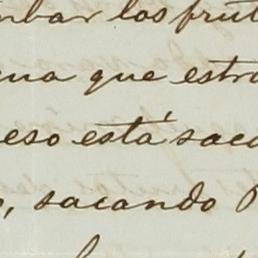 nbar los frut
gua que estra
eso está saca
o, sacando